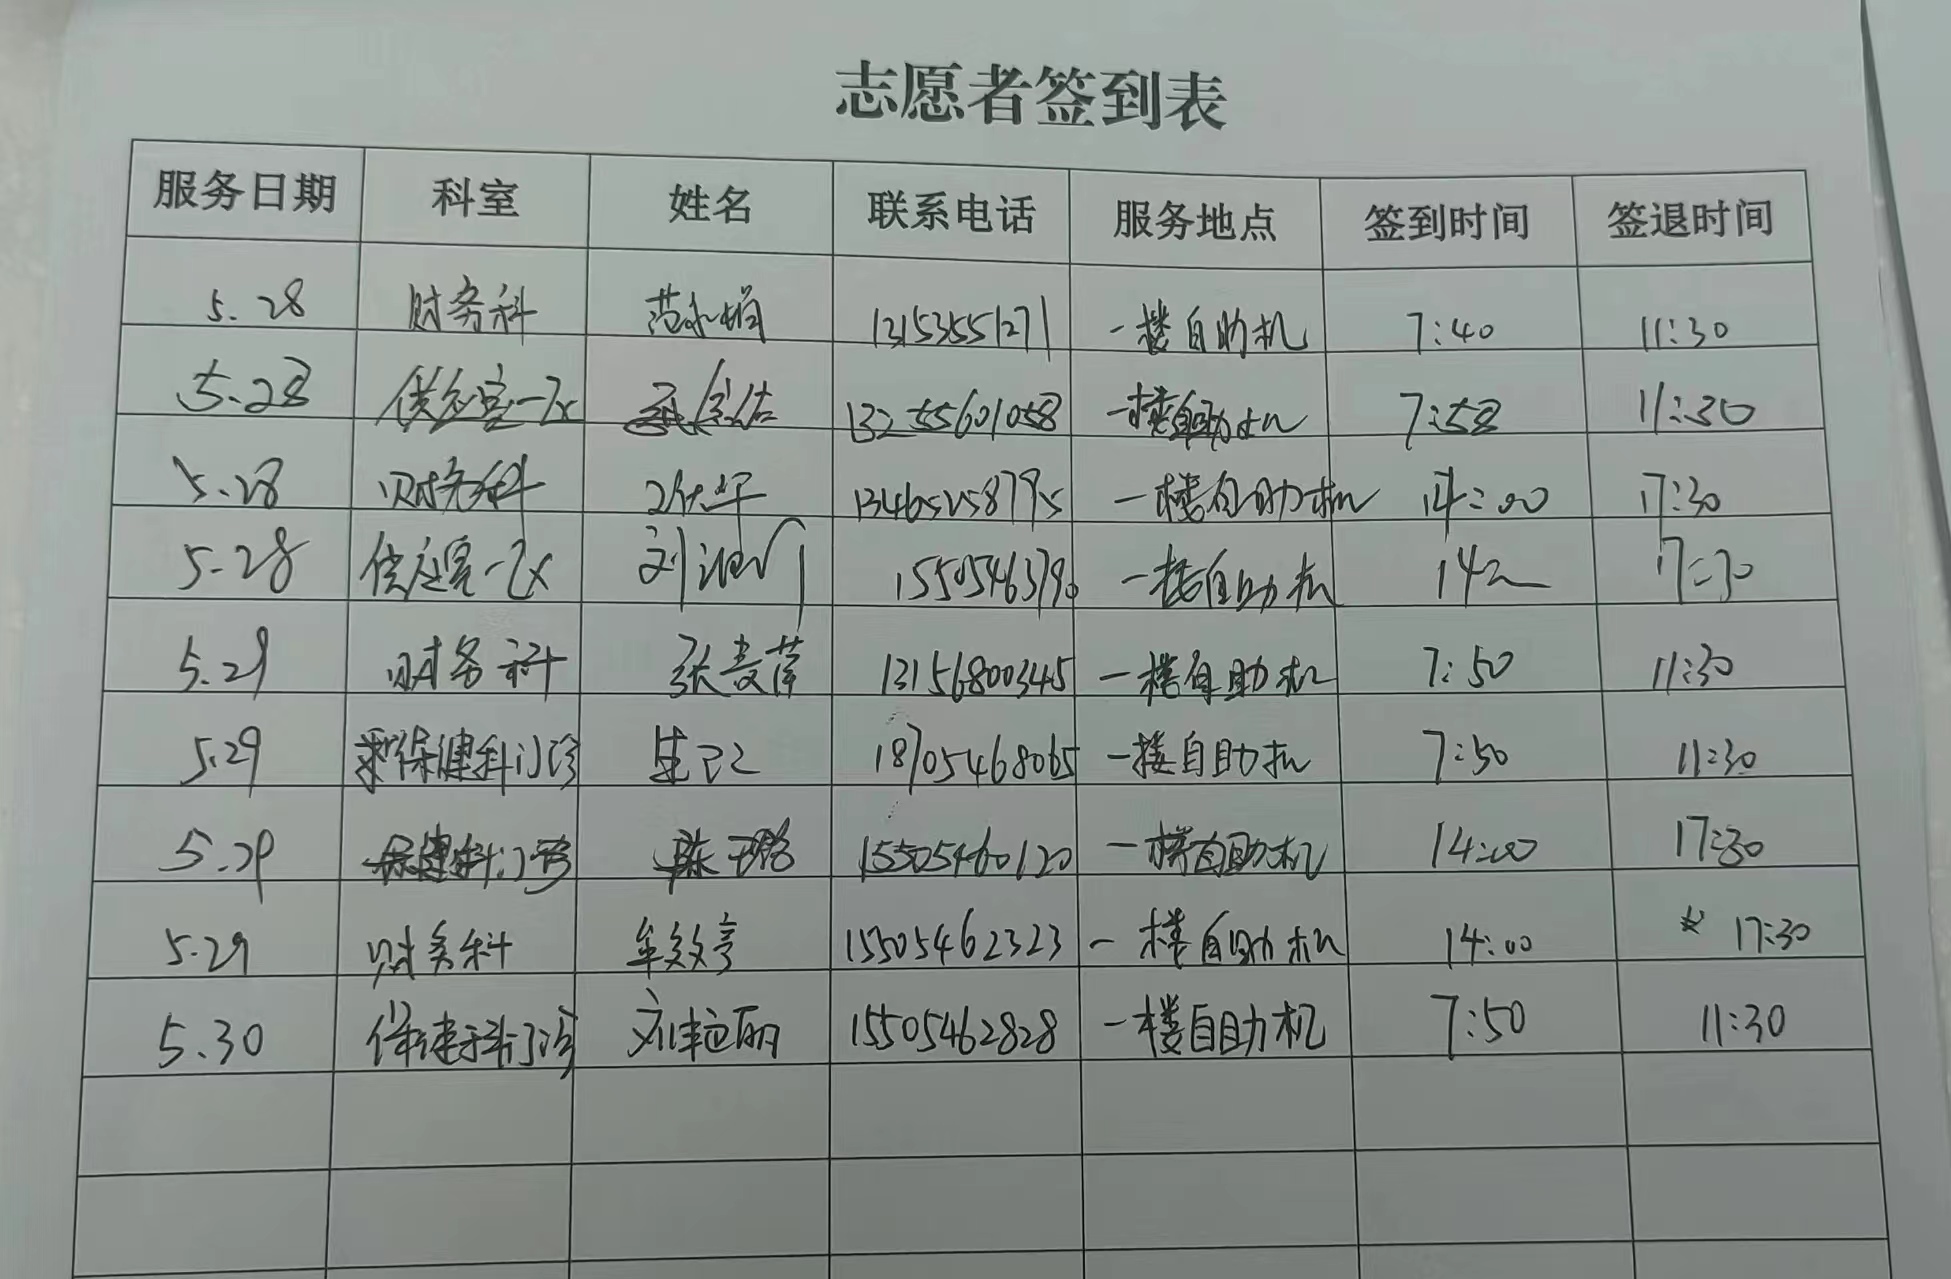 志愿者签到表
服务日期 科室 姓名 联系电话 服务地点 签到时间 签退时间
5.28 财务科 13153551271 一楼自助机 7:40 11:30
5.28 供应室一区 13255601058 一楼自助机 7:58 11:30
5.28 财务科 一楼自助机 14:00 17:30
5.28 供应室一区 刘 一楼自助机 17:30
5.29 财务科 张 13156800345 一楼自助机 7:50 11:30
5.29 保健科门诊 18705468065 一楼自助机 7:50 11:30
5.29 保健科门诊 陈璐 15505460120 一楼自助机 14:00 17:30
5.29 财务科 牟效亭 15505462323 一楼自助机 14:00 17:30
5.30 保健科门诊 15505462828 一楼自助机 7:50 11:30